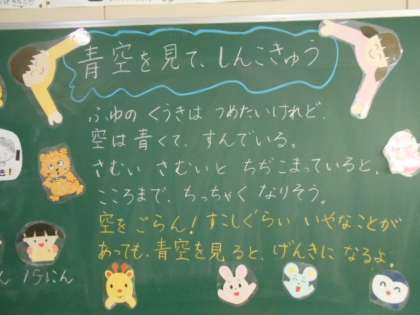 青空を見て、しんこきゅう
ふゆの くうきは つめたいけれど、
空は青くて、すんでいる。
さむい さむいと ちぢこまっていると、
こころまで、ちっちゃく なりそう。
空をごらん！すこしぐらい いやなことが
あっても、青空を見ると、げんきに なるよ。
ん 15にん